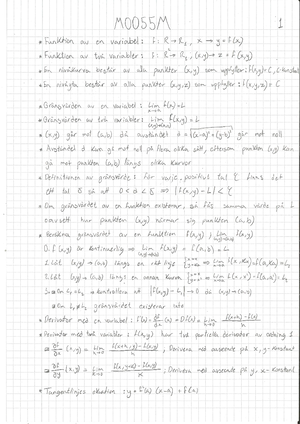 M0055M
1
* Funktion av en variabel: f: R→R, x → y = f(x)
* Funktion av två variabler: f: R²→R, (x,y) → z = f(x,y)
* En nivåkurva består av alla punkter (x,y) som uppfyller: f(x,y)=C, C konstant
* En nivåyta består av alla punkter (x,y,z) som uppfyller: f(x,y,z)=C
* Gränsvärden av en variabel: lim f(x)=L
* Gränsvärden av två variabler: lim f(x,y)=L
* (x,y) går mot (a,b) då avståndet d=√((x-a)²+(y-b)²) går mot noll
* Avståndet d kan gå mot noll på flera olika sätt, eftersom punkten (x,y) kan
gå mot punkten (a,b) längs olika kurvor
* Definitionen av gränsvärde: för varje positivt tal ξ finns det
ett tal δ så att 0<d<δ ⇒ |f(x,y)-L|<ξ
* Om gränsvärdet av en funktion existerar, så fås samma värde på L
oavsett hur punkten (x,y) närmar sig punkten (a,b)
* Beräkna gränsvärdet av en funktion f(x,y), lim f(x,y)
0. f(x,y) är kontinuerlig ⇒ lim f(x,y) = f(a,b) = L
1. Låt (x,y)→(a,b) längs en rät linje
2. Låt (x,y)→(a,b) längs en annan kurva
3. Om L₁=L₂ ⇒ Kontrollera att |f(x,y)-L₁|→0 då (x,y)→(a,b)
* Om L₁≠L₂ gränsvärdet existerar inte
* Derivator med en variabel: f'(x) = df/dx (x) = Df(x) = lim (f(x+h)-f(x))/h
* Derivator med två variabler: f(x,y) har två partiella derivator av ordning 1
∂f/∂x (x,y) = lim (f(x+h,y)-f(x,y))/h, Derivera med avseende på x, y-konstant
∂f/∂y (x,y) = lim (f(x,y+k)-f(x,y))/k, Derivera med avseende på y, x-konstant
* Tangentlinjes ekvation: y = f'(a)(x-a) + f(a)